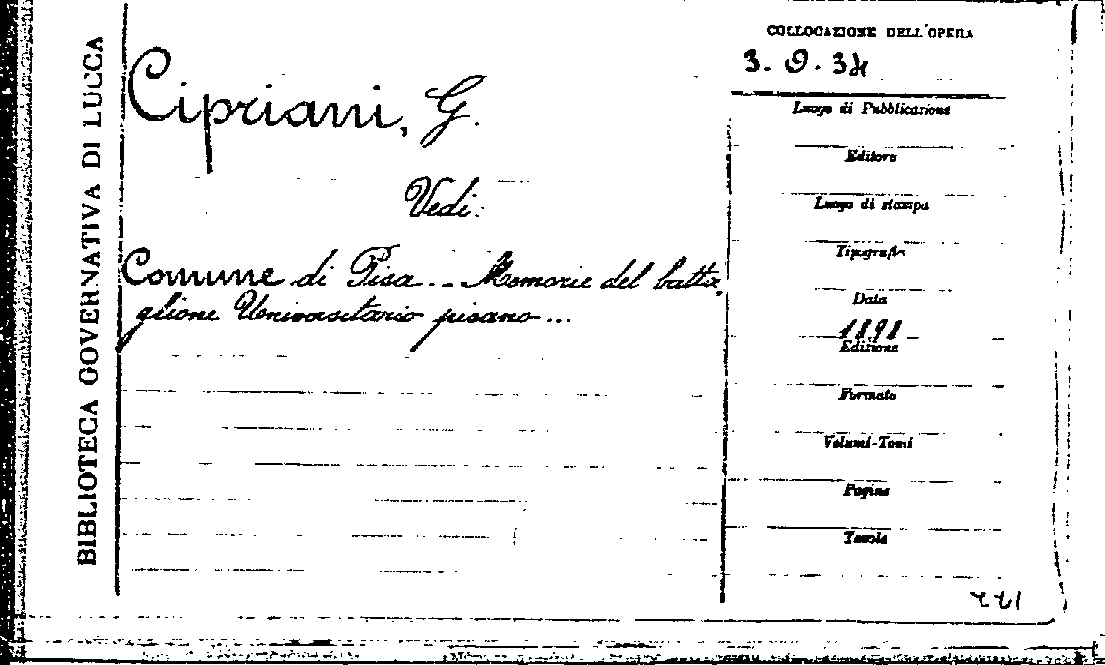 BIBLIOTECA GOVERNATIVA DI LUCCA
Cipriani, G.
Vedi:
Comune di Pisa... Memorie del batta-
glione Universitario pisano...
COLLOCAZIONE DELL'OPERA
Luogo di Pubblicazione
Editore
Luogo di stampa
Tipografia
Data
1898
Edizione
Formato
Volumi-Tomi
Pagine
Tavole